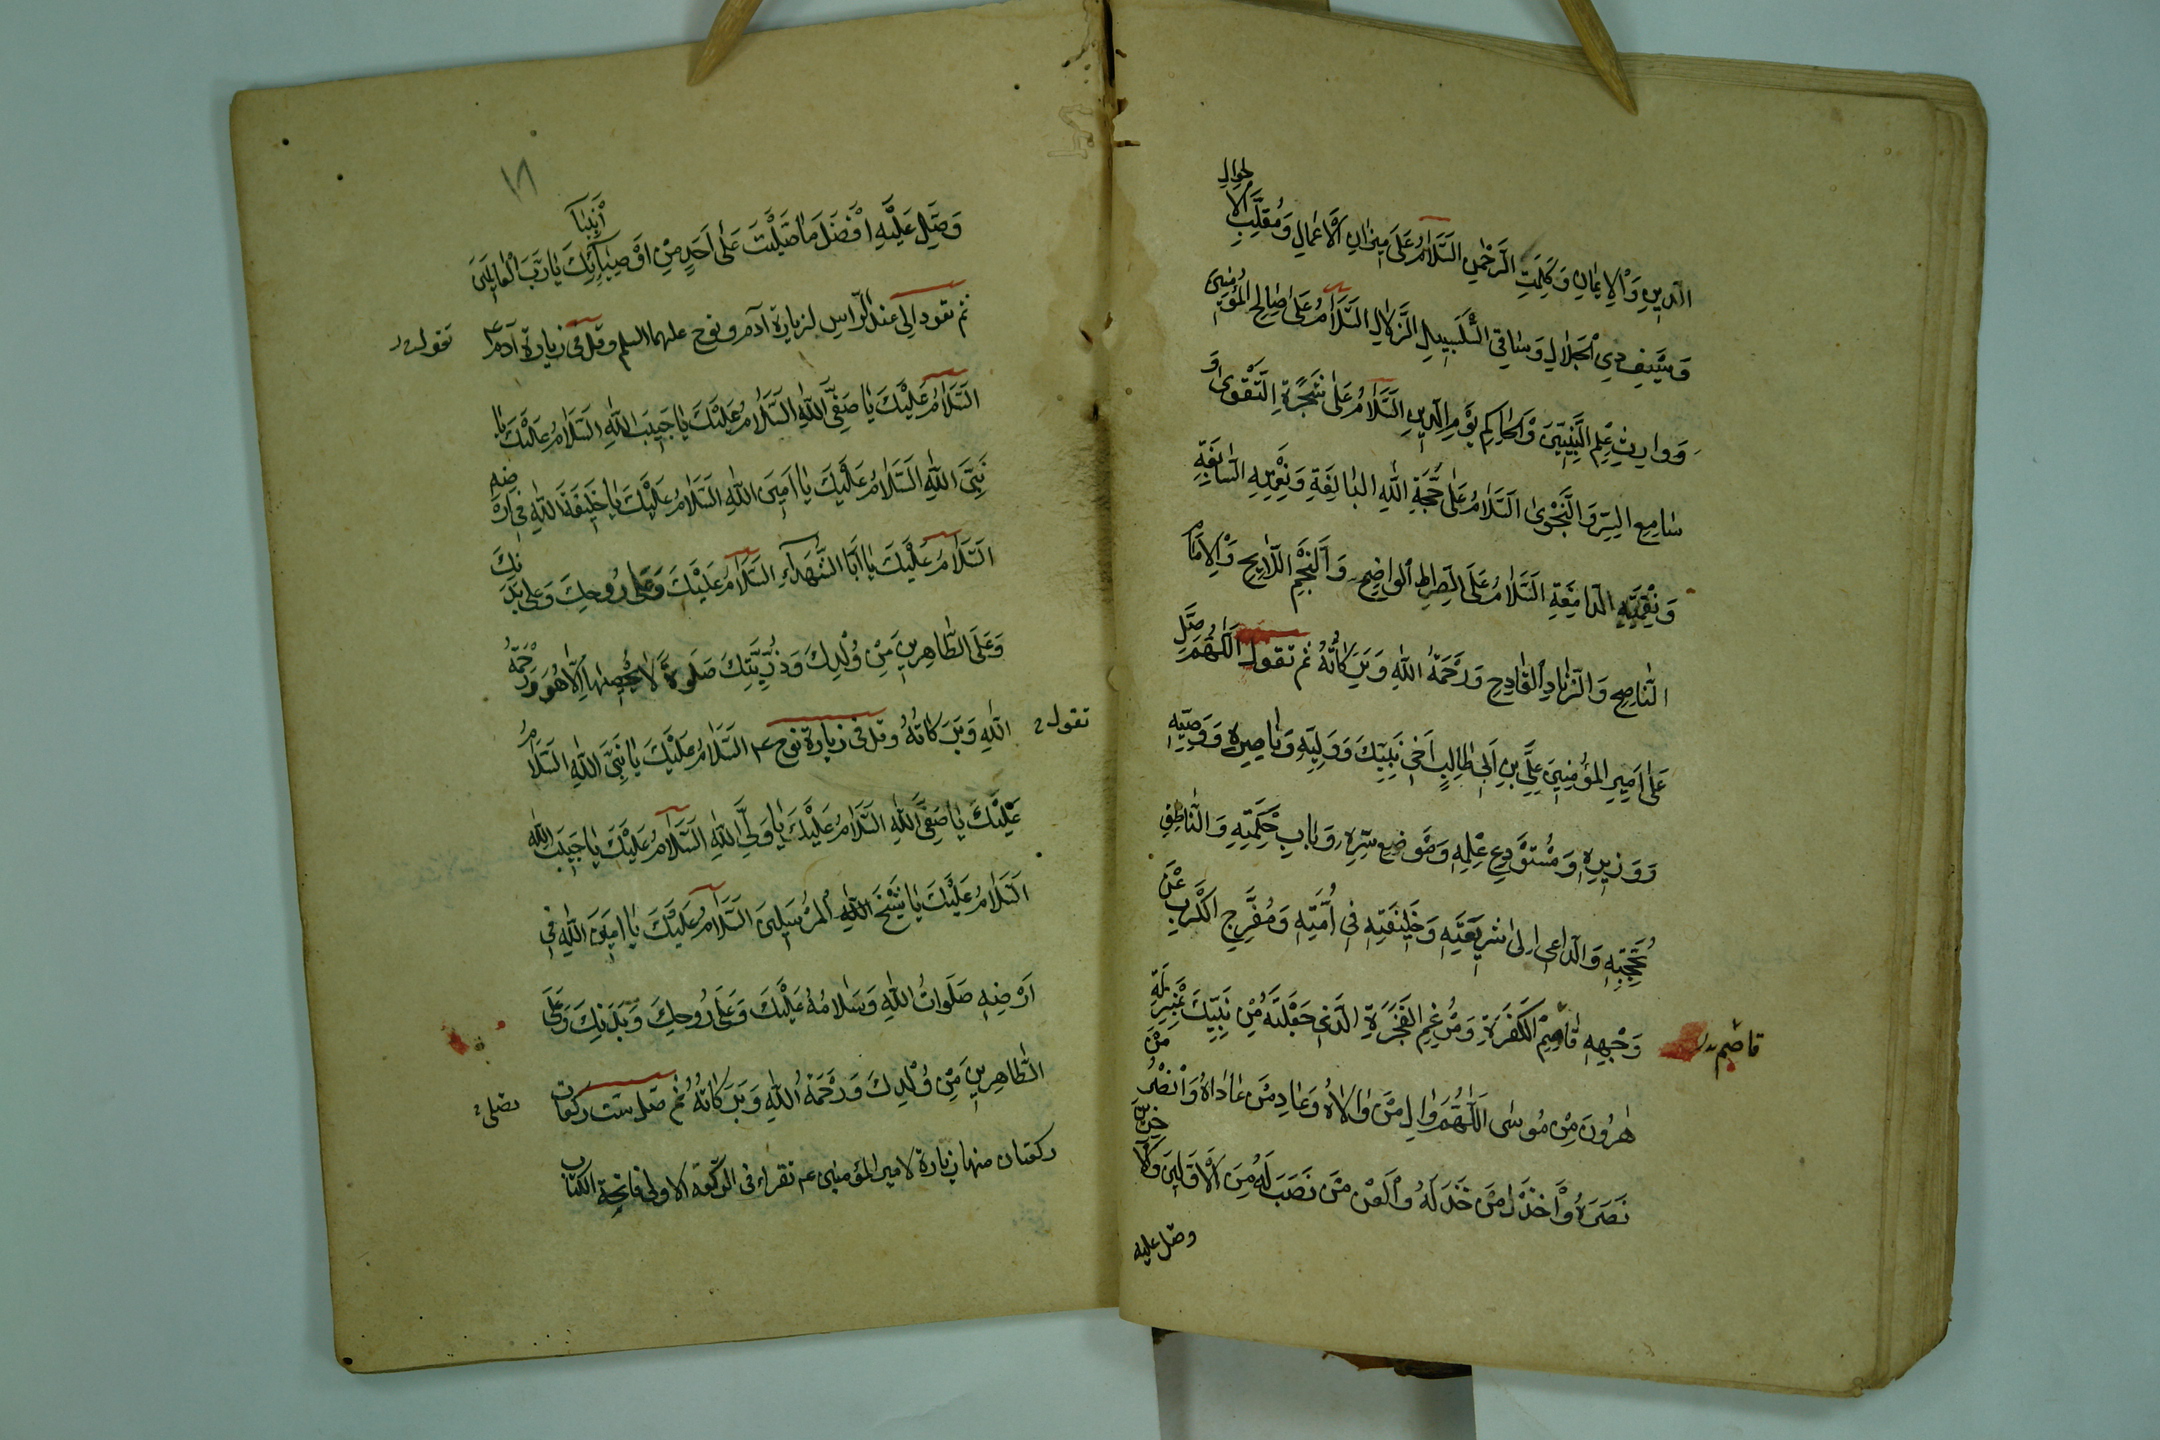 الدِّينِ وَالْإِيمَانِ وَكَلِمَتِ الرَّحْمٰنِ السَّلَامُ عَلَى مِيزَانِ الْأَعْمَالِ وَمُقَلِّبِ الْأَحْوَالِ
وَسَيْفِ ذِي الْجَلَالِ وَسَاقِي السَّلْسَبِيلِ الزُّلَالِ السَّلَامُ عَلَى صَالِحِ الْمُؤْمِنِينَ
وَوَارِثِ عِلْمِ النَّبِيِّينَ وَالْحَاكِمِ يَوْمَ الدِّينِ السَّلَامُ عَلَى شَجَرَةِ التَّقْوَى وَ
سَامِعِ السِّرِّ وَالنَّجْوَى السَّلَامُ عَلَى حُجَّةِ اللهِ الْبَالِغَةِ وَنِعْمَتِهِ السَّابِغَةِ
وَنِقْمَتِهِ الدَّامِغَةِ السَّلَامُ عَلَى الصِّرَاطِ الْوَاضِحِ وَالنَّجْمِ اللَّايِحِ وَالْإِمَامِ
النَّاصِحِ وَالزِّنَادِ الْقَادِحِ وَرَحْمَةُ اللهِ وَبَرَكَاتُهُ ثم تقول اللّٰهُمَّ صَلِّ
عَلَى أَمِيرِ الْمُؤْمِنِينَ عَلِيِّ بْنِ أَبِي طَالِبٍ أَخِي نَبِيِّكَ وَوَلِيِّهِ وَنَاصِرِهِ وَوَصِيِّهِ
وَوَزِيرِهِ وَمُسْتَوْدَعِ عِلْمِهِ وَمَوْضِعِ سِرِّهِ وَبَابِ حِكْمَتِهِ وَالنَّاطِقِ
بِحُجَّتِهِ وَالدَّاعِي إِلَى شَرِيعَتِهِ وَخَلِيفَتِهِ فِي أُمَّتِهِ وَمُفَرِّجِ الْكَرْبِ عَنْ
وَجْهِهِ قَاصِمِ الْكَفَرَةِ وَمُرْغِمِ الْفَجَرَةِ الَّذِي جَعَلْتَهُ مِنْ نَبِيِّكَ بِمَنْزِلَةِ
قاصم
هٰرُونَ مِنْ مُوسَى اللّٰهُمَّ وَالِ مَنْ وَالَاهُ وَعَادِ مَنْ عَادَاهُ وَانْصُرْ مَنْ
نَصَرَهُ وَاخْذُلْ مَنْ خَذَلَهُ وَالْعَنْ مَنْ نَصَبَ لَهُ مِنَ الْأَوَّلِينَ وَالْآخِرِينَ
وصل عليه
١٨
وَصَلِّ عَلَيْهِ أَفْضَلَ مَا صَلَّيْتَ عَلَى أَحَدٍ مِنْ أَوْصِيَاءِ أَنْبِيَائِكَ يَا رَبَّ الْعَالَمِينَ
ثم تعود الى عند الرّاس لزيارة آدم و نوح عليهما السلم و قل فى زيارة آدم ع
تقول
السَّلَامُ عَلَيْكَ يَا صَفِيَّ اللهِ السَّلَامُ عَلَيْكَ يَا حَبِيبَ اللهِ السَّلَامُ عَلَيْكَ يَا
نَبِيَّ اللهِ السَّلَامُ عَلَيْكَ يَا أَمِينَ اللهِ السَّلَامُ عَلَيْكَ يَا خَلِيفَةَ اللهِ فِي أَرْضِهِ
السَّلَامُ عَلَيْكَ يَا أَبَا الشُّهَدَاءِ السَّلَامُ عَلَيْكَ وَعَلَى رُوحِكَ وَعَلَى بَدَنِكَ
وَعَلَى الطَّاهِرِينَ مِنْ وُلْدِكَ وَذُرِّيَّتِكَ صَلَوةً لَا يُحْصِيهَا إِلَّا هُوَ وَرَحْمَةُ
تقول
اللهِ وَبَرَكَاتُهُ و قل فى زيارة نوح ع السَّلَامُ عَلَيْكَ يَا نَبِيَّ اللهِ السَّلَامُ
عَلَيْكَ يَا صَفِيَّ اللهِ السَّلَامُ عَلَيْكَ يَا وَلِيَّ اللهِ السَّلَامُ عَلَيْكَ يَا حَبِيبَ اللهِ
السَّلَامُ عَلَيْكَ يَا شَيْخَ الْمُرْسَلِينَ السَّلَامُ عَلَيْكَ يَا أَمِينَ اللهِ فِي
أَرْضِهِ صَلَوَاتُ اللهِ وَسَلَامُهُ عَلَيْكَ وَعَلَى رُوحِكَ وَبَدَنِكَ وَعَلَى
الطَّاهِرِينَ مِنْ وُلْدِكَ وَرَحْمَةُ اللهِ وَبَرَكَاتُهُ ثم صل ست ركعات
تصلى
ركعتان منها زيارة لامير المؤمنين ع تقراء فى الركعة الاولى فاتحة الكتاب